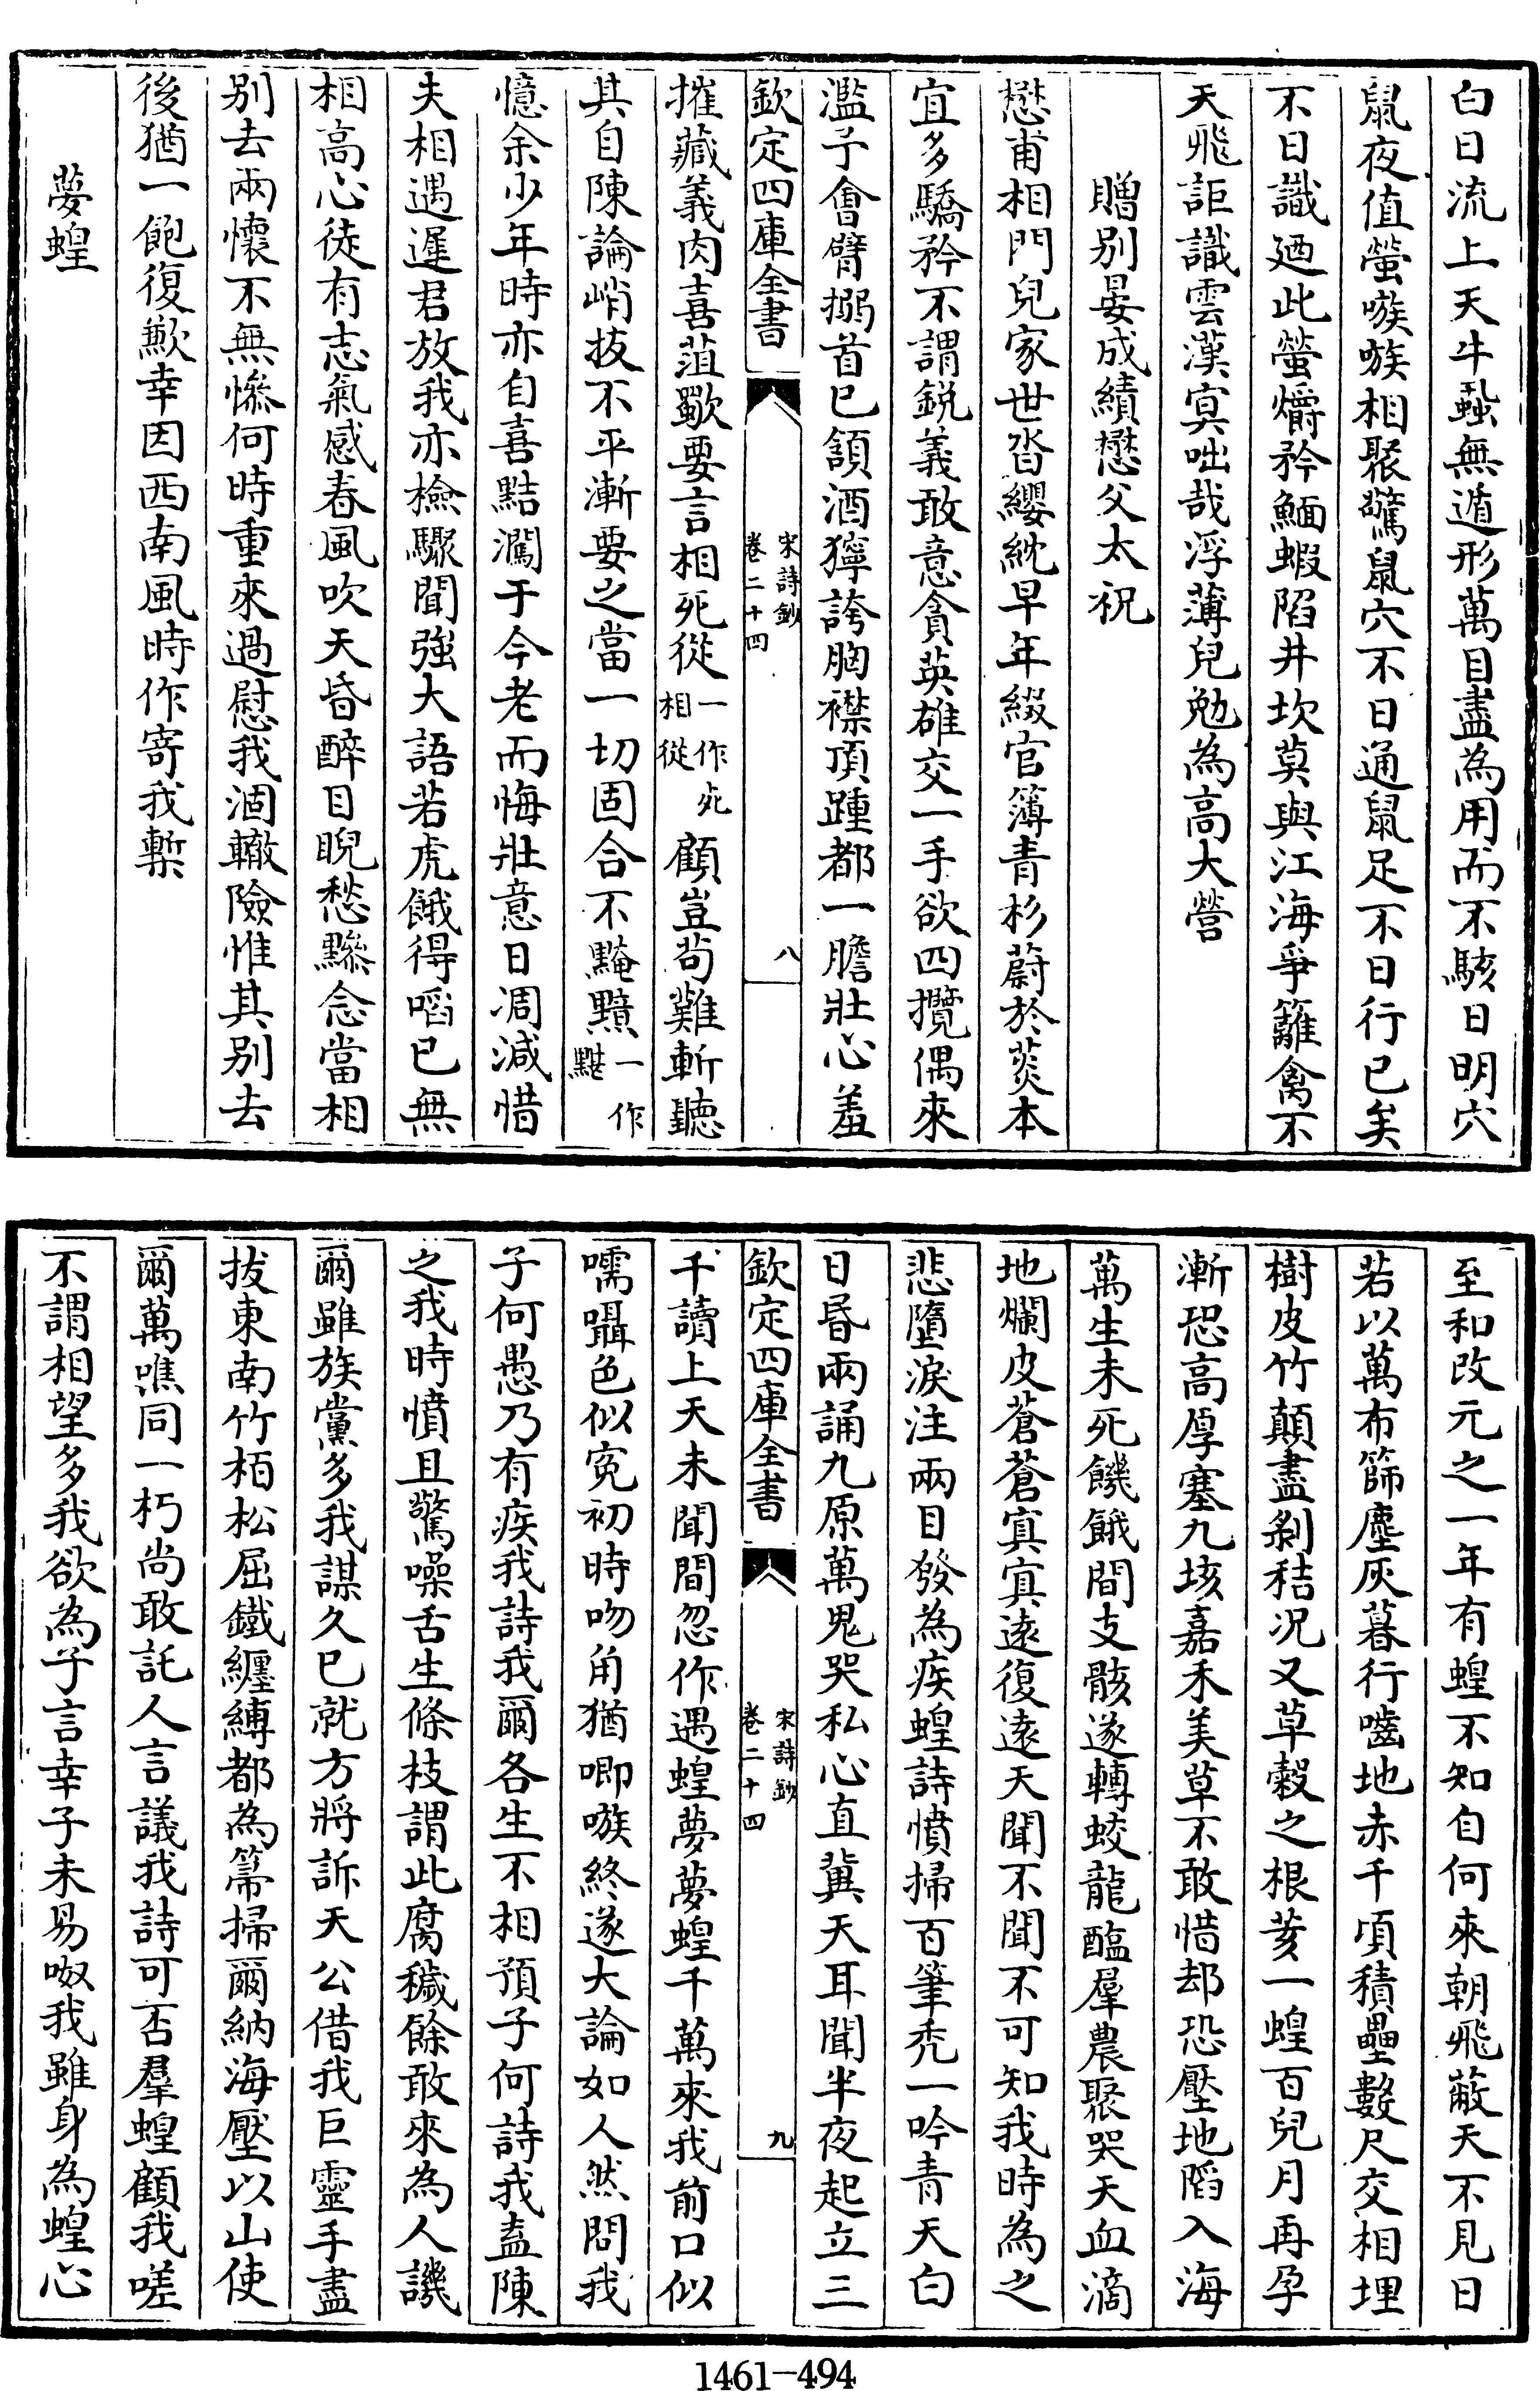 白日流上天牛蝨無遁形萬目盡為用而不駭日明穴
鼠夜值螢嗾嗾相聚驚鼠穴不日通鼠足不日行已矣
不日識廼此螢爝矜鮞蝦陷井坎莫與江海爭籬禽不
天飛詎識雲漢㝠咄哉浮薄兒勉為高大營
贈别晏成績懋父太祝
懋甫相門兒家世沓纓紞早年綴官簿青衫蔚於菼本
宜多驕矜不謂鋭義敢意貪英雄交一手欲四攬偶來
濫予會臂搦首已頷酒獰誇胸襟頂踵都一膽壯心羞
欽定四庫全書
宋詩鈔
卷二十四
八
摧藏義肉喜菹歜要言相死從一作死相從顧豈苟難斬聽
其自陳論峭拔不平漸要之當一切固合不黤黮一作黮
憶余少年時亦自喜黠灍于今老而悔壯意日凋減惜
夫相遇遲君放我亦檢驟聞強大語若虎餓得啗已無
相高心徒有志氣感春風吹天昏醉目睨愁黲念當相
别去兩懷不無慘何時重來過慰我涸轍險惟其别去
後猶一飽復歉幸因西南風時作寄我槧
夢蝗
至和改元之一年有蝗不知自何來朝飛蔽天不見日
若以萬布篩塵灰暮行嚙地赤千頃積壘數尺交相埋
樹皮竹顛盡剝秸况又草穀之根荄一蝗百兒月再孕
漸恐高厚塞九垓嘉禾美草不敢惜却恐壓地陷入海
萬生未死饑餓間支骸遂轉蛟龍醢羣農聚哭天血滴
地爛皮蒼蒼㝠㝠逺復逺天聞不聞不可知我時為之
悲墮淚注兩目發為疾蝗詩憤掃百筆禿一吟青天白
日昏兩誦九原萬鬼哭私心直冀天耳聞半夜起立三
欽定四庫全書
宋詩鈔
卷二十四
九
千讀上天未聞間忽作遇蝗夢夢蝗千萬來我前口似
嚅囁色似寃初時吻角猶唧嗾終遂大論如人然問我
子何愚乃有疾我詩我爾各生不相預子何詩我盍陳
之我時憤且驚噪舌生條枝謂此腐穢餘敢來為人譏
爾雖族黨多我謀久已就方將訴天公借我巨靈手盡
拔東南竹栢松屈鐵纏縛都為箒掃爾納海壓以山使
爾萬噍同一朽尚敢託人言議我詩可否羣蝗顧我嗟
不謂相望多我欲為子言幸子未易呶我雖身為蝗心
1461-494